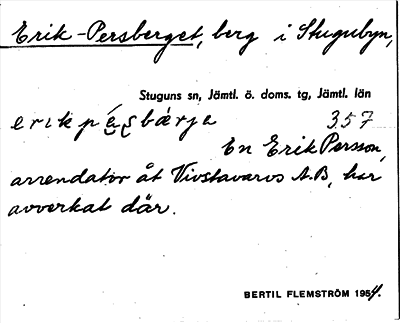 Erik-Persberget, berg i Stugubyn,
Stuguns sn, Jämtl. ö. doms. tg, Jämtl. län
357
En Erik Persson,
arrendator åt Vivstavarvs A.B, har
avverkat där.
BERTIL FLEMSTRÖM 1954.